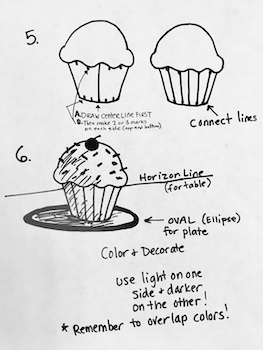 5.
A. DRAW CENTER LINE FIRST
B. Then make 2 or 3 marks
on each side (top and bottom)
Connect lines
6.
Horizon Line
(for table)
OVAL (Ellipse)
for plate
Color & Decorate
Use light on one
side & darker
on the other!
* Remember to overlap colors!